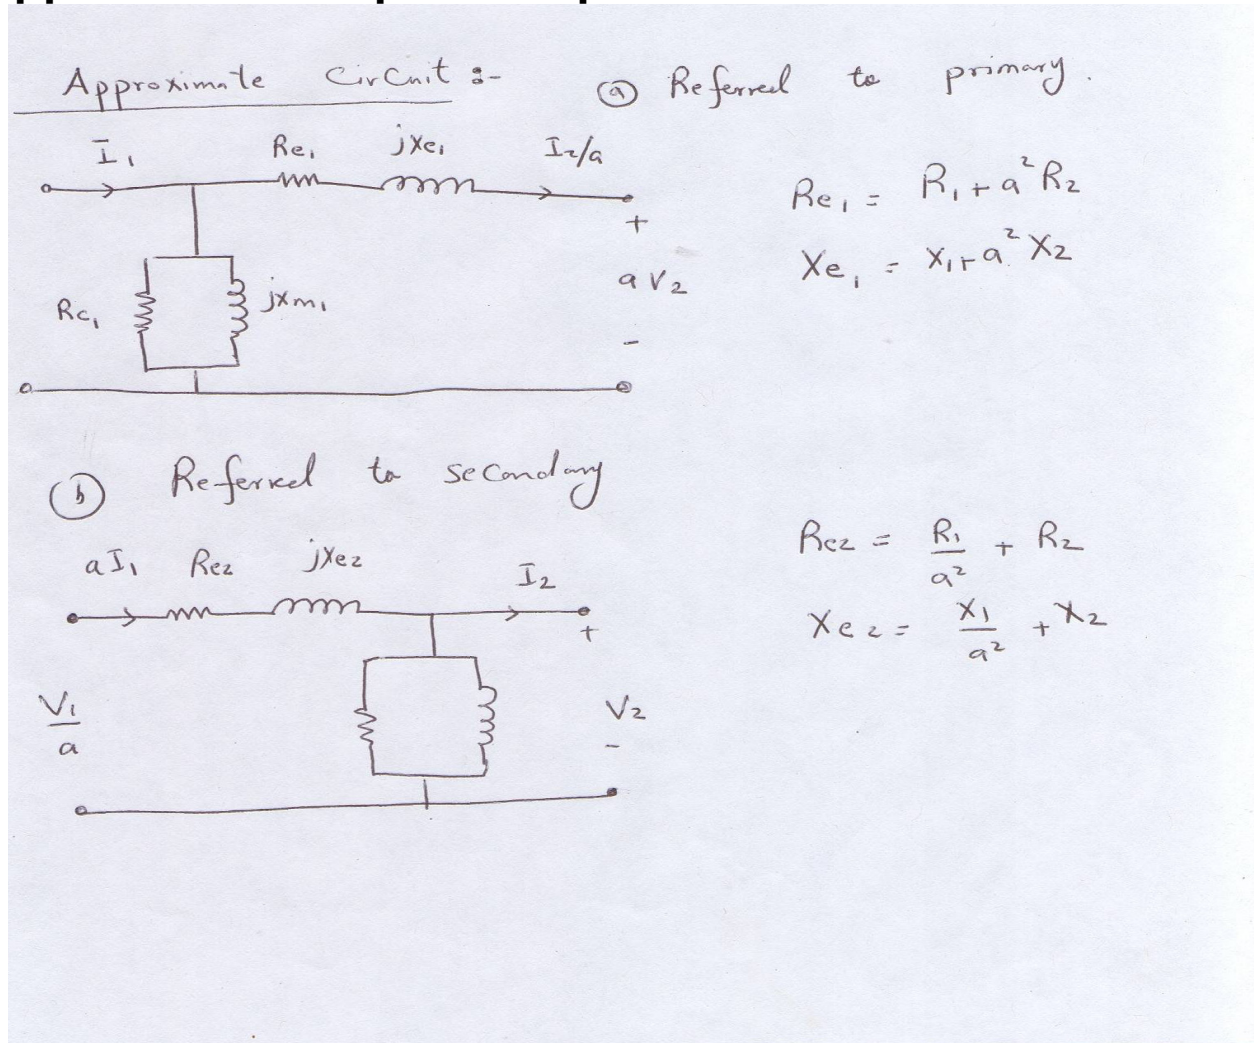 Approximate Circuit :-
(a) Referred to primary.
I₁ Re₁ jXe₁ I₂/a
Re₁ = R₁ + a²R₂
+
Xe₁ = X₁ + a²X₂
Rc₁ jXm₁ aV₂
-
(b) Referred to secondary
aI₁ Re₂ jXe₂ I₂
Re₂ = R₁/a² + R₂
+
Xe₂ = X₁/a² + X₂
V₁/a V₂
-